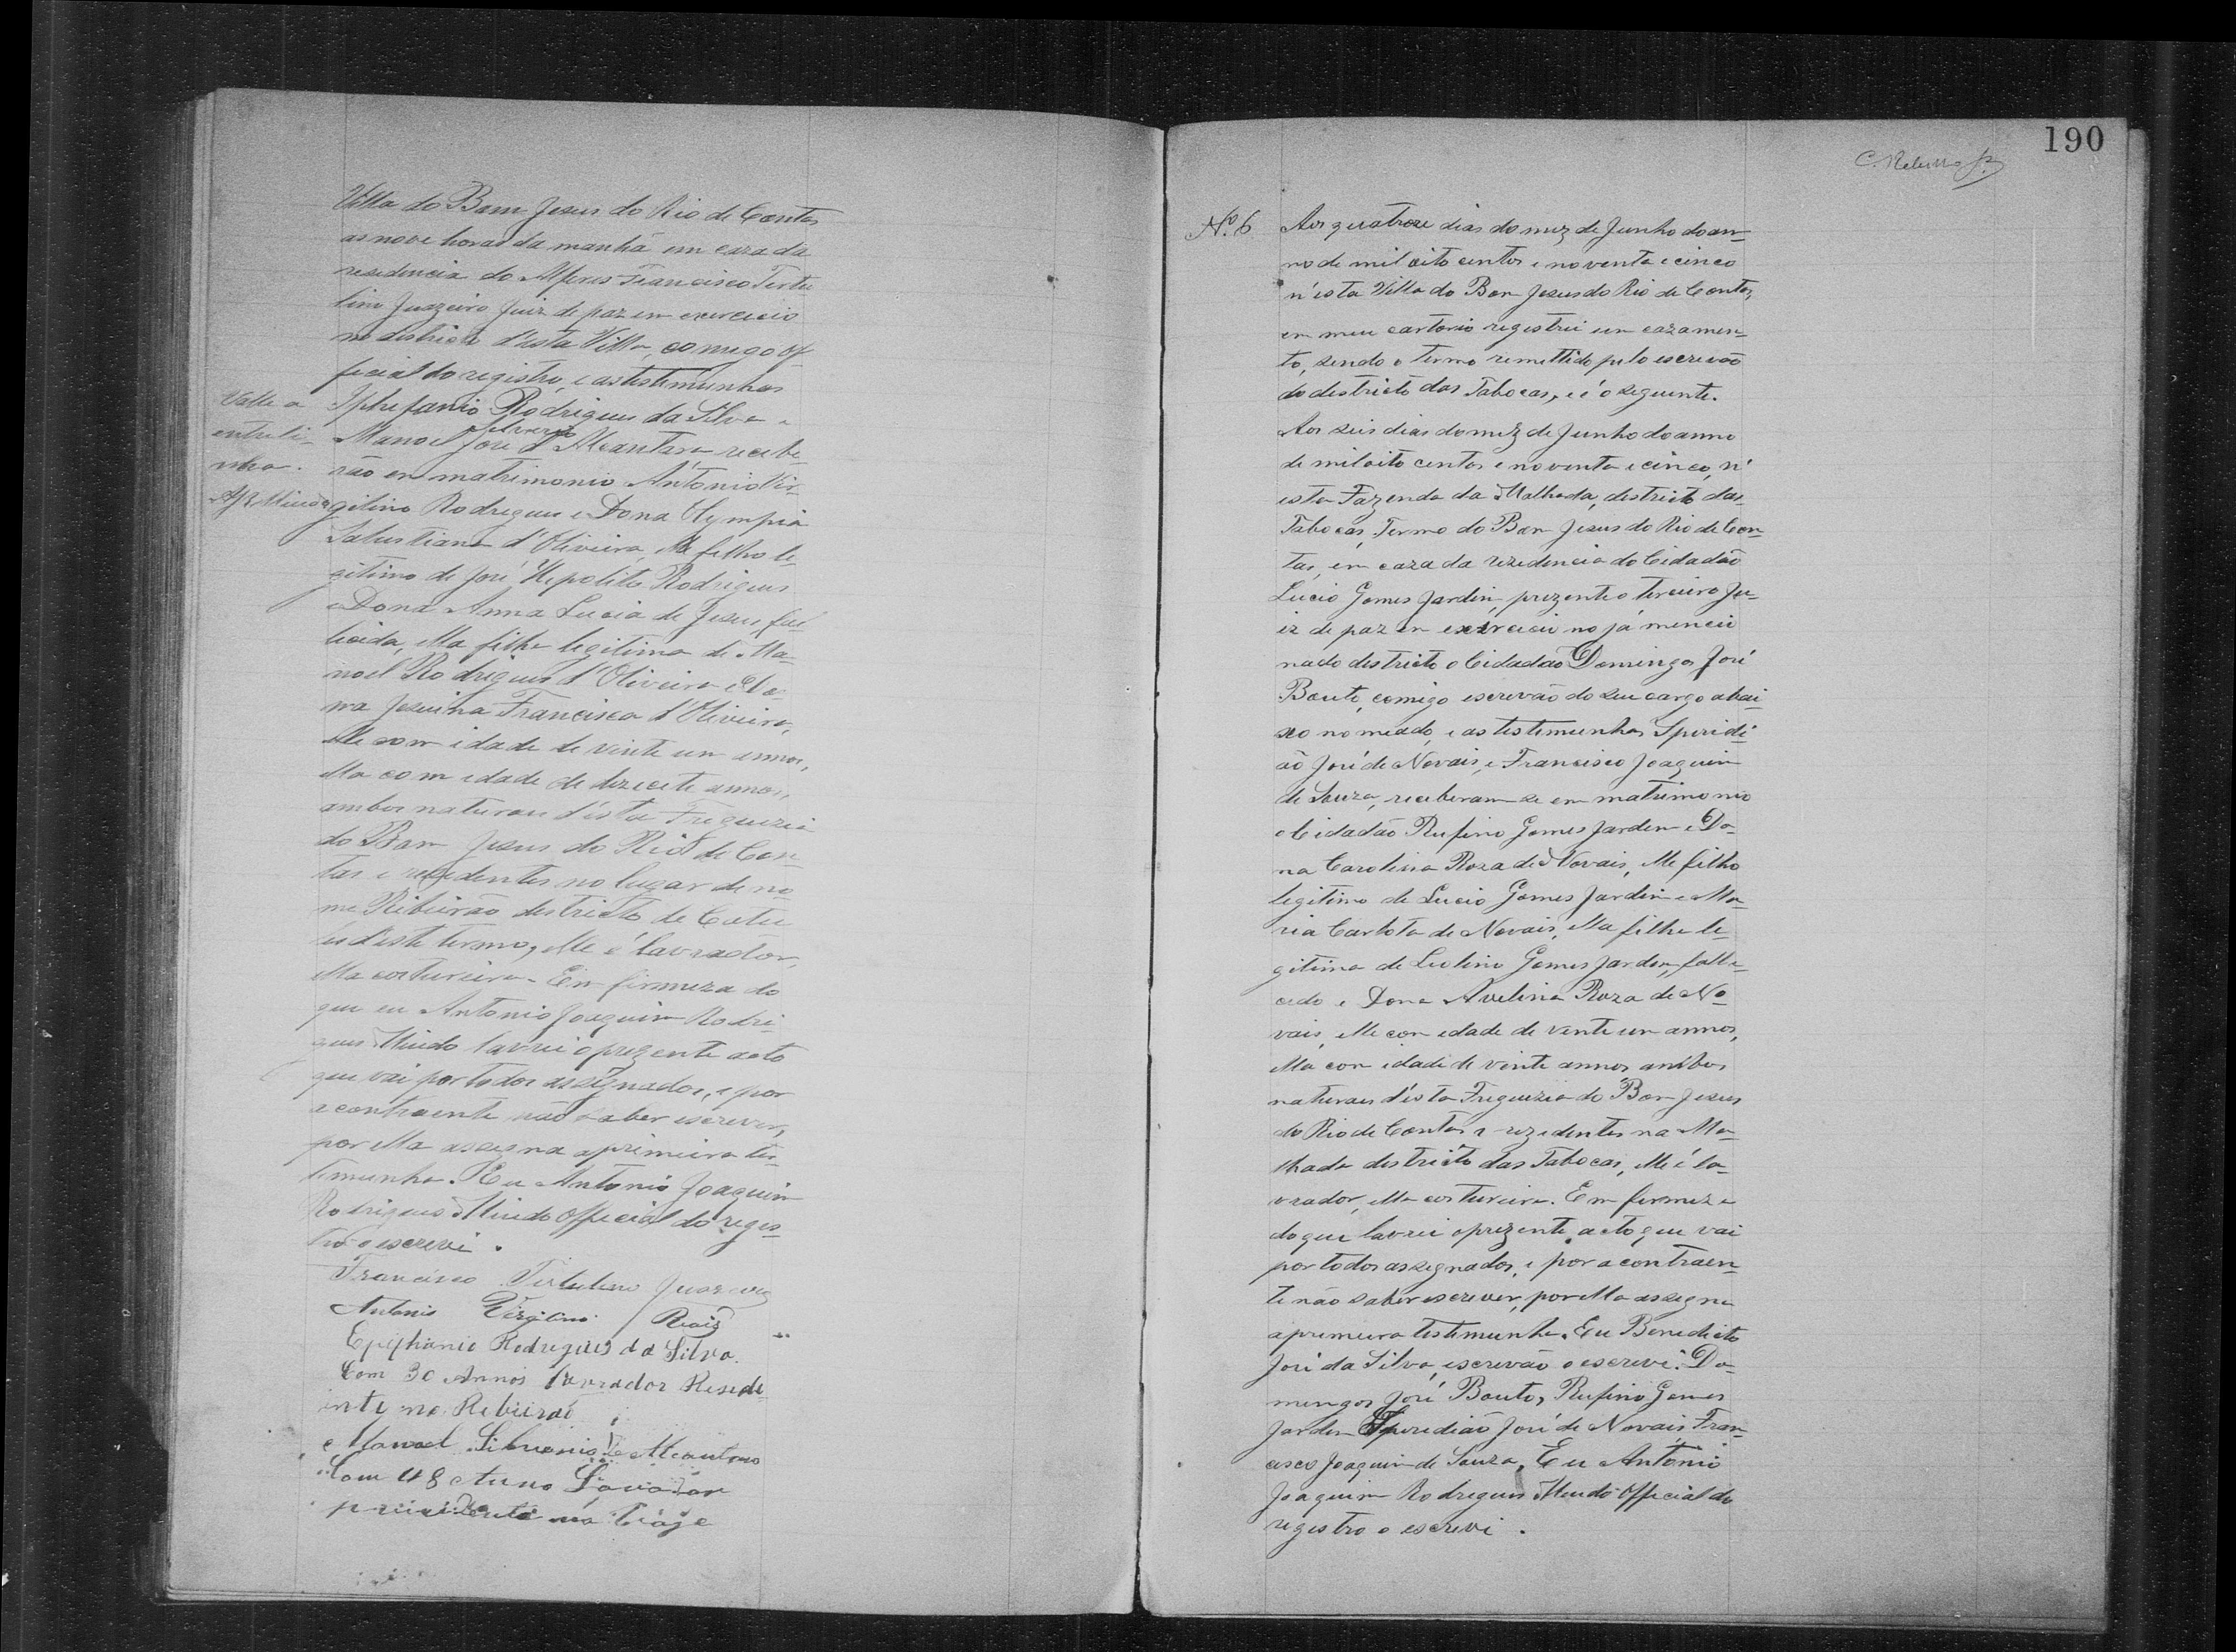 Villa do Bom Jesus do Rio de Contas
as nove horas da manhã em caza da
residencia do Alferes Francisco Tertu
lino Juazeiro Juiz de paz em exercicio
no districto d'esta Villa, comigo of
ficial do registro, e as testemunhas
Iphifanio Rodrigues da Silva e
Manoel José d'Alcantara recebe
Silverio
Valle a
entreli-
nha.
rão em matrimonio Antonio Vir-
gilino Rodrigues e Dona Olympia
Salustiana d'Oliveira, elle filho le-
gitimo de José Hepolito Rodrigues
e Dona Anna Lucia de Jesus, fal
licida, ella filha legitima de Ma-
noel Rodrigues d'Oliveira e Do
na Jesuina Francisca d'Oliveira,
elle com idade de vinte um annos,
ella com idade de dizecete annos,
ambos naturaes d'esta Freguezia
do Bom Jesus do Rio de Con-
tas e rezedentes no lugar de no
me Ribeirão destricto de
d'este termo, elle é lavrador,
ella costureira. Em firmeza do
que eu Antonio Joaquim Rodri-
gues Miudo lavrei o prezente acto
que vai por todos assignados, e por
a contraente não saber escrever,
por ella assigna a primeira tes-
temunha. Eu Antonio Joaquim
Rodrigues Miudo Official do regis-
tro o escrevi.
Francisco Tertulino
Antonio Virgilino
Epiphanio Rodrigues da Silva
Com 30 Annos lavrador Reside
inte no Ribeirão
Manoel Alcantara
Com 48 Anno Lavrador
190
Nº 6
Aos quatroze dias do mez de Junho do an-
no de mil oito centos e noventa e cinco
n'esta Villa do Bom Jesus do Rio de Contas,
em meu cartorio registrei um cazamen-
to, sendo o termo remettido pelo escrivão
do destricto das Tabocas, e é o seguinte.
Aos seis dias do mez de Junho do anno
de mil oito centos e noventa e cinco, n'
esta Fazenda da Malhada, destricto das
Tabocas, Termo do Bom Jesus do Rio de Con-
tas, em caza da rezedencia do Cidadão
Lucio Gomes Jardim, prezente o terceiro Ju-
iz de paz em exercicio no já mencio
nado destricto o Cidadão Domingos José
Bouto, comigo escrevão do seu cargo abai-
xo nomeado, e as testemunhas Speridi-
ão José de Novais, e Francisco Joaquim
de Souza, receberam-se em matrimonio
o Cidadão Rufino Gomes Jarden e Do-
na Carolina Roza de Novais, elle filho
legitimo de Lucio Gomes Jardim e Ma-
ria Carlota de Novais, ella filha le-
gitima de Leolino Gomes Jarden, falle-
cedo e Dona Avelina Roza de No-
vais, elle com edade de vente um annos,
ella com idade de vinte annos ambos
naturaes d'esta Freguezia do Bom Jesus
do Rio de Contas e rezedentes na Ma-
lhada destricto das Tabocas, elle é la-
vrador, ella costureira. Em firmeza
do que lavrei o prezente acto que vai
por todos assegnados, e por a contraen-
te não saber escrever, por ella assegna
a premeira testemunha. Eu Benedicto
José da Silva, escrevão o escrevi. Do-
mingos José Bouto, Rufino Gomes
Jarden Speredião José de Novais, Fran-
cisco Joaquim de Souza. Eu Antonio
Joaquim Rodrigues Miudo Official do
registro o escrevi.